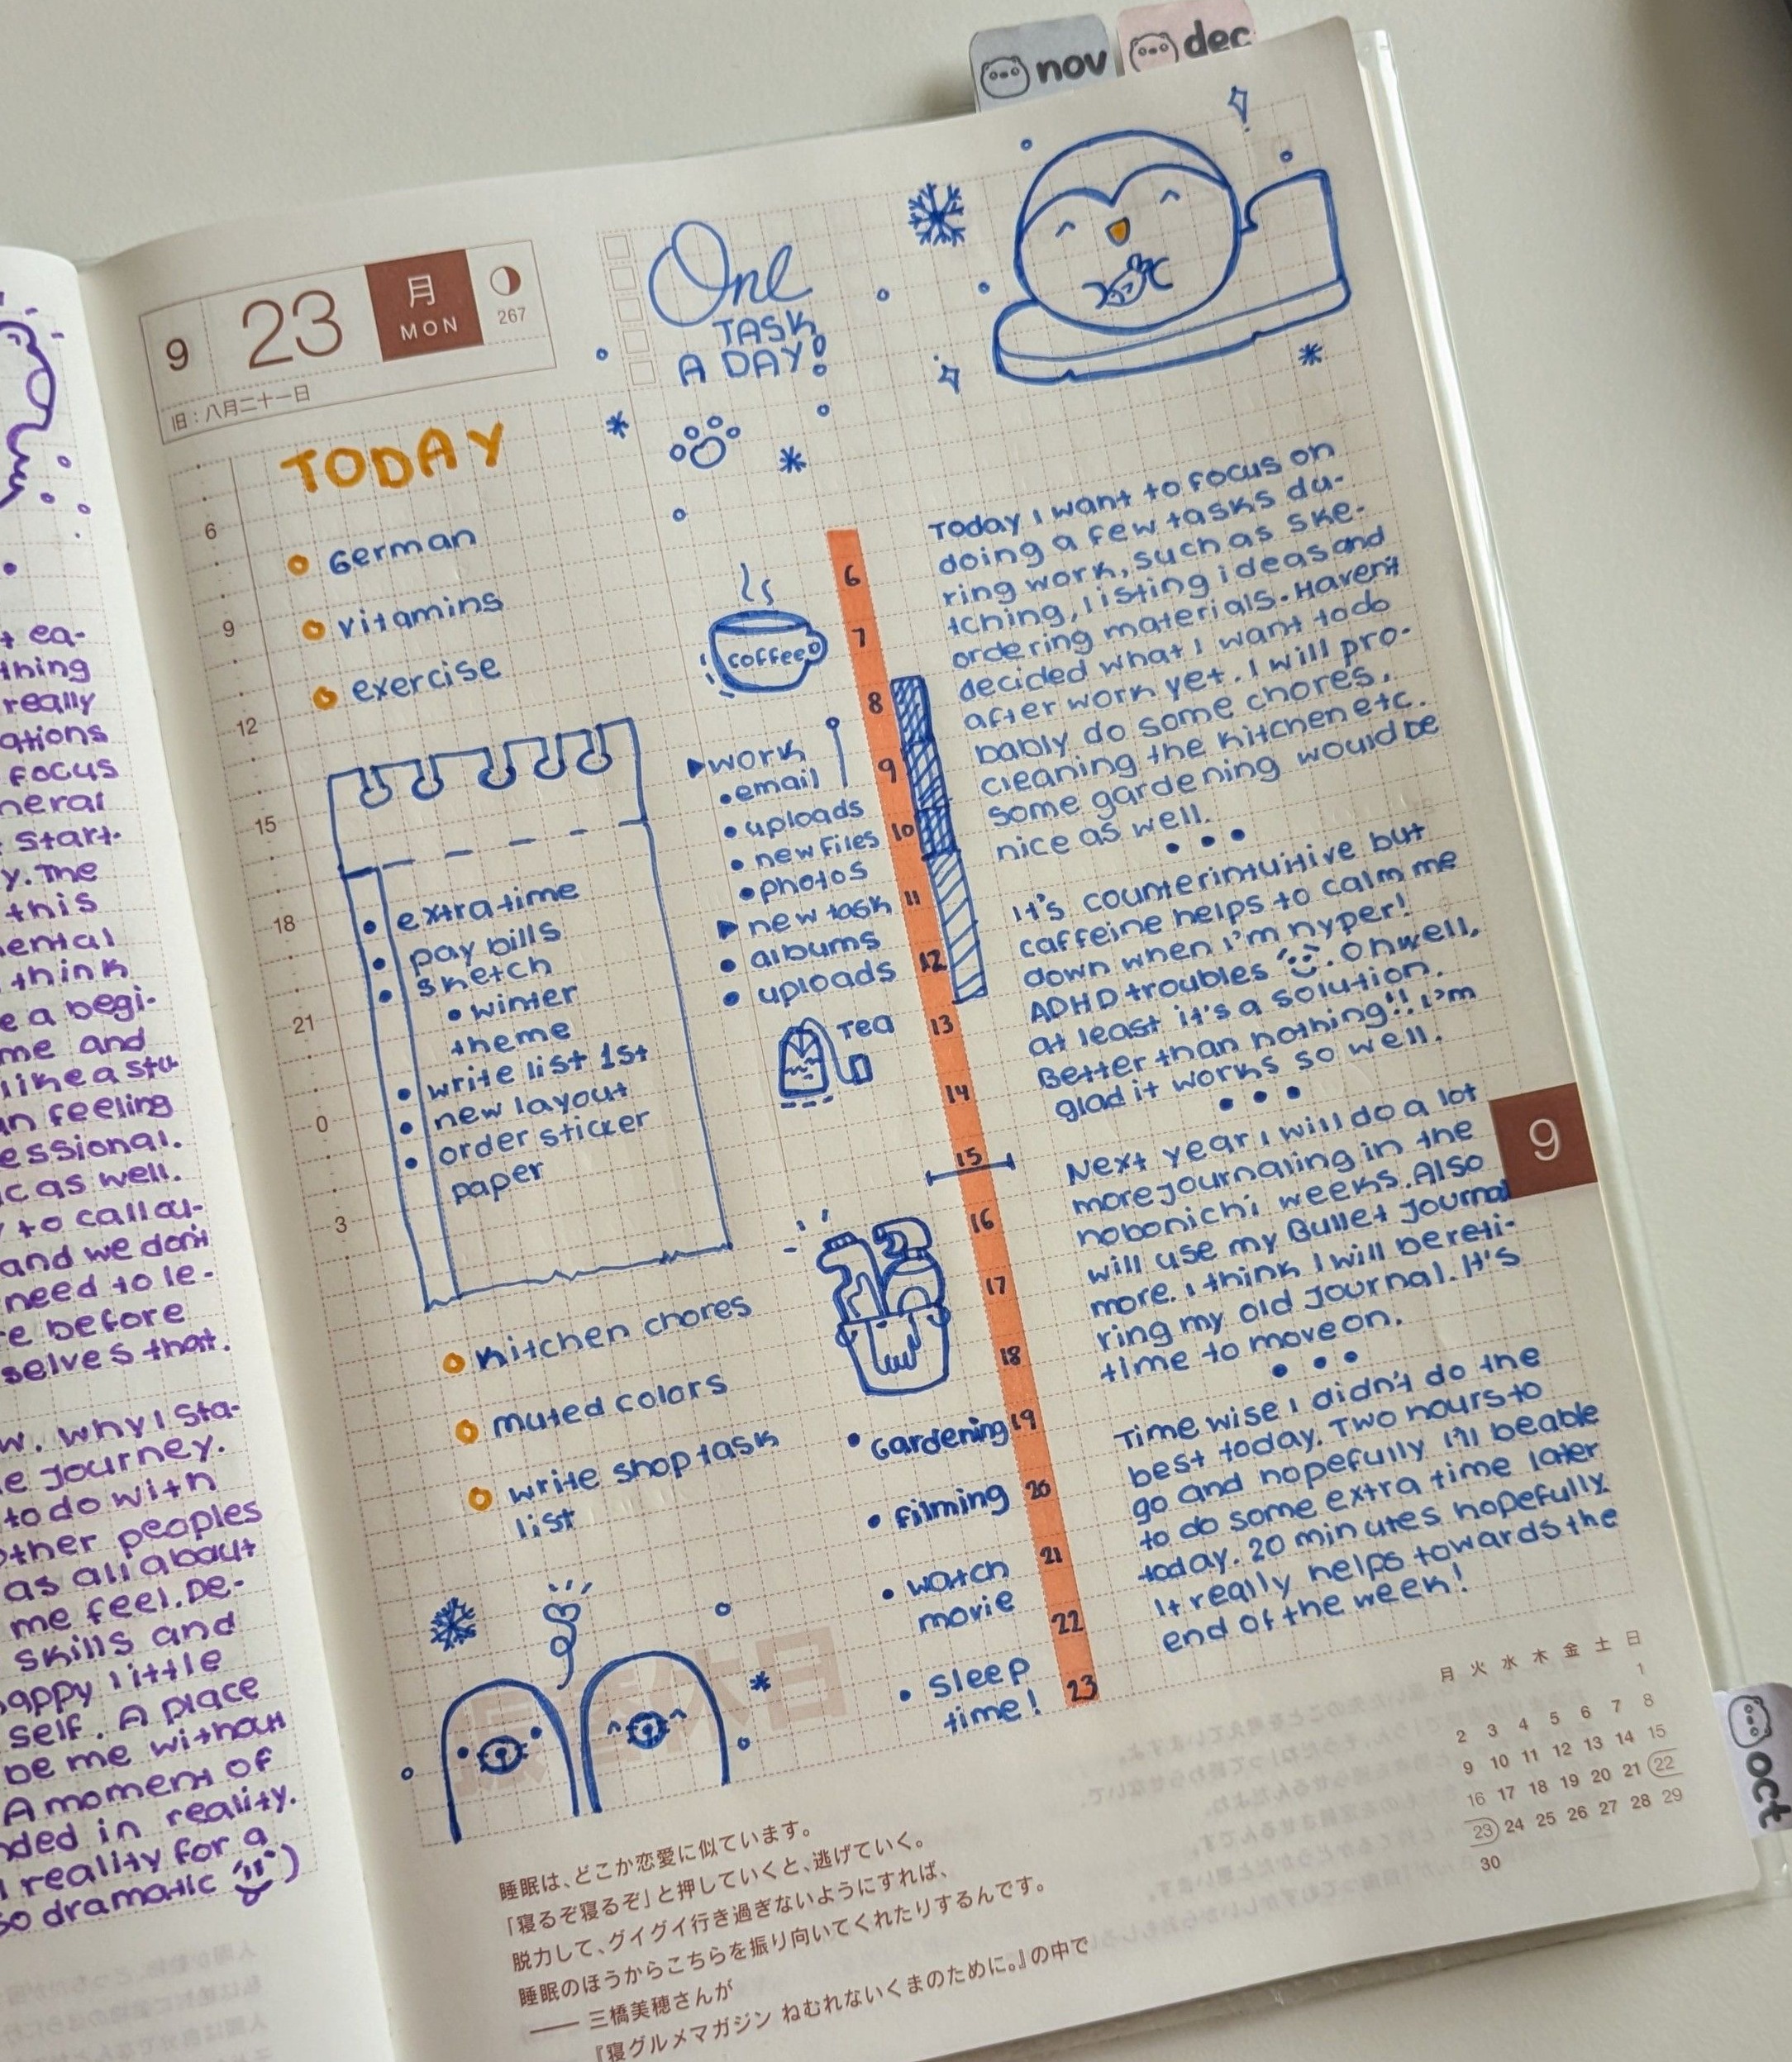 nov
dec
9
23
月
MON
267
旧：八月二十一日
One
TASK
A DAY!
TODAY
German
vitamins
exercise
6
9
12
15
18
21
0
3
extra time
pay bills
sketch
winter
theme
write list 1st
new layout
order sticker
paper
kitchen chores
muted colors
write shop task
list
coffee
work
email
uploads
new files
photos
new task
albums
uploads
TEA
Gardening
filming
watch
movie
sleep
time!
6
7
8
9
10
11
12
13
14
15
16
17
18
19
20
21
22
23
Today I want to focus on
doing a few tasks du-
ring work, such as ske-
tching, listing ideas and
ordering materials. Haven't
decided what I want to do
after work yet. I will pro-
bably do some chores,
cleaning the kitchen etc.
some gardening would be
nice as well.
It's counterintuitive but
caffeine helps to calm me
down when I'm hyper!
ADHD troubles. Oh well,
at least it's a solution.
Better than nothing!! I'm
glad it works so well.
Next year I will do a lot
more journaling in the
hobonichi weeks. Also
will use my Bullet Journal
more. I think I will be reti-
ring my old journal. It's
time to move on.
Time wise I didn't do the
best today. Two hours to
go and hopefully I'll be able
to do some extra time later
today. 20 minutes hopefully.
It really helps towards the
end of the week!
9
月 火 水 木 金 土 日
1
2 3 4 5 6 7 8
9 10 11 12 13 14 15
16 17 18 19 20 21 22
23 24 25 26 27 28 29
30
oct
睡眠は、どこか恋愛に似ています。
「寝るぞ寝るぞ」と押していくと、逃げていく。
脱力して、グイグイ行き過ぎないようにすれば、
睡眠のほうからこちらを振り向いてくれたりするんです。
―― 三橋美穂さんが
『寝グルメマガジン ねむれないくまのために。』の中で
ea-
thing
really
ations
focus
neral
start.
y. The
this
ental
think
e a begi-
me and
like a stu-
an feeling
essional.
c as well.
to call ou-
and we don't
need to le-
e before
selves that.
w. why I sta-
e journey.
to do with
other peoples
as all about
me feel. De-
skills and
happy little
self. A place
be me without
A moment of
nded in reality.
reality for a
so dramatic )